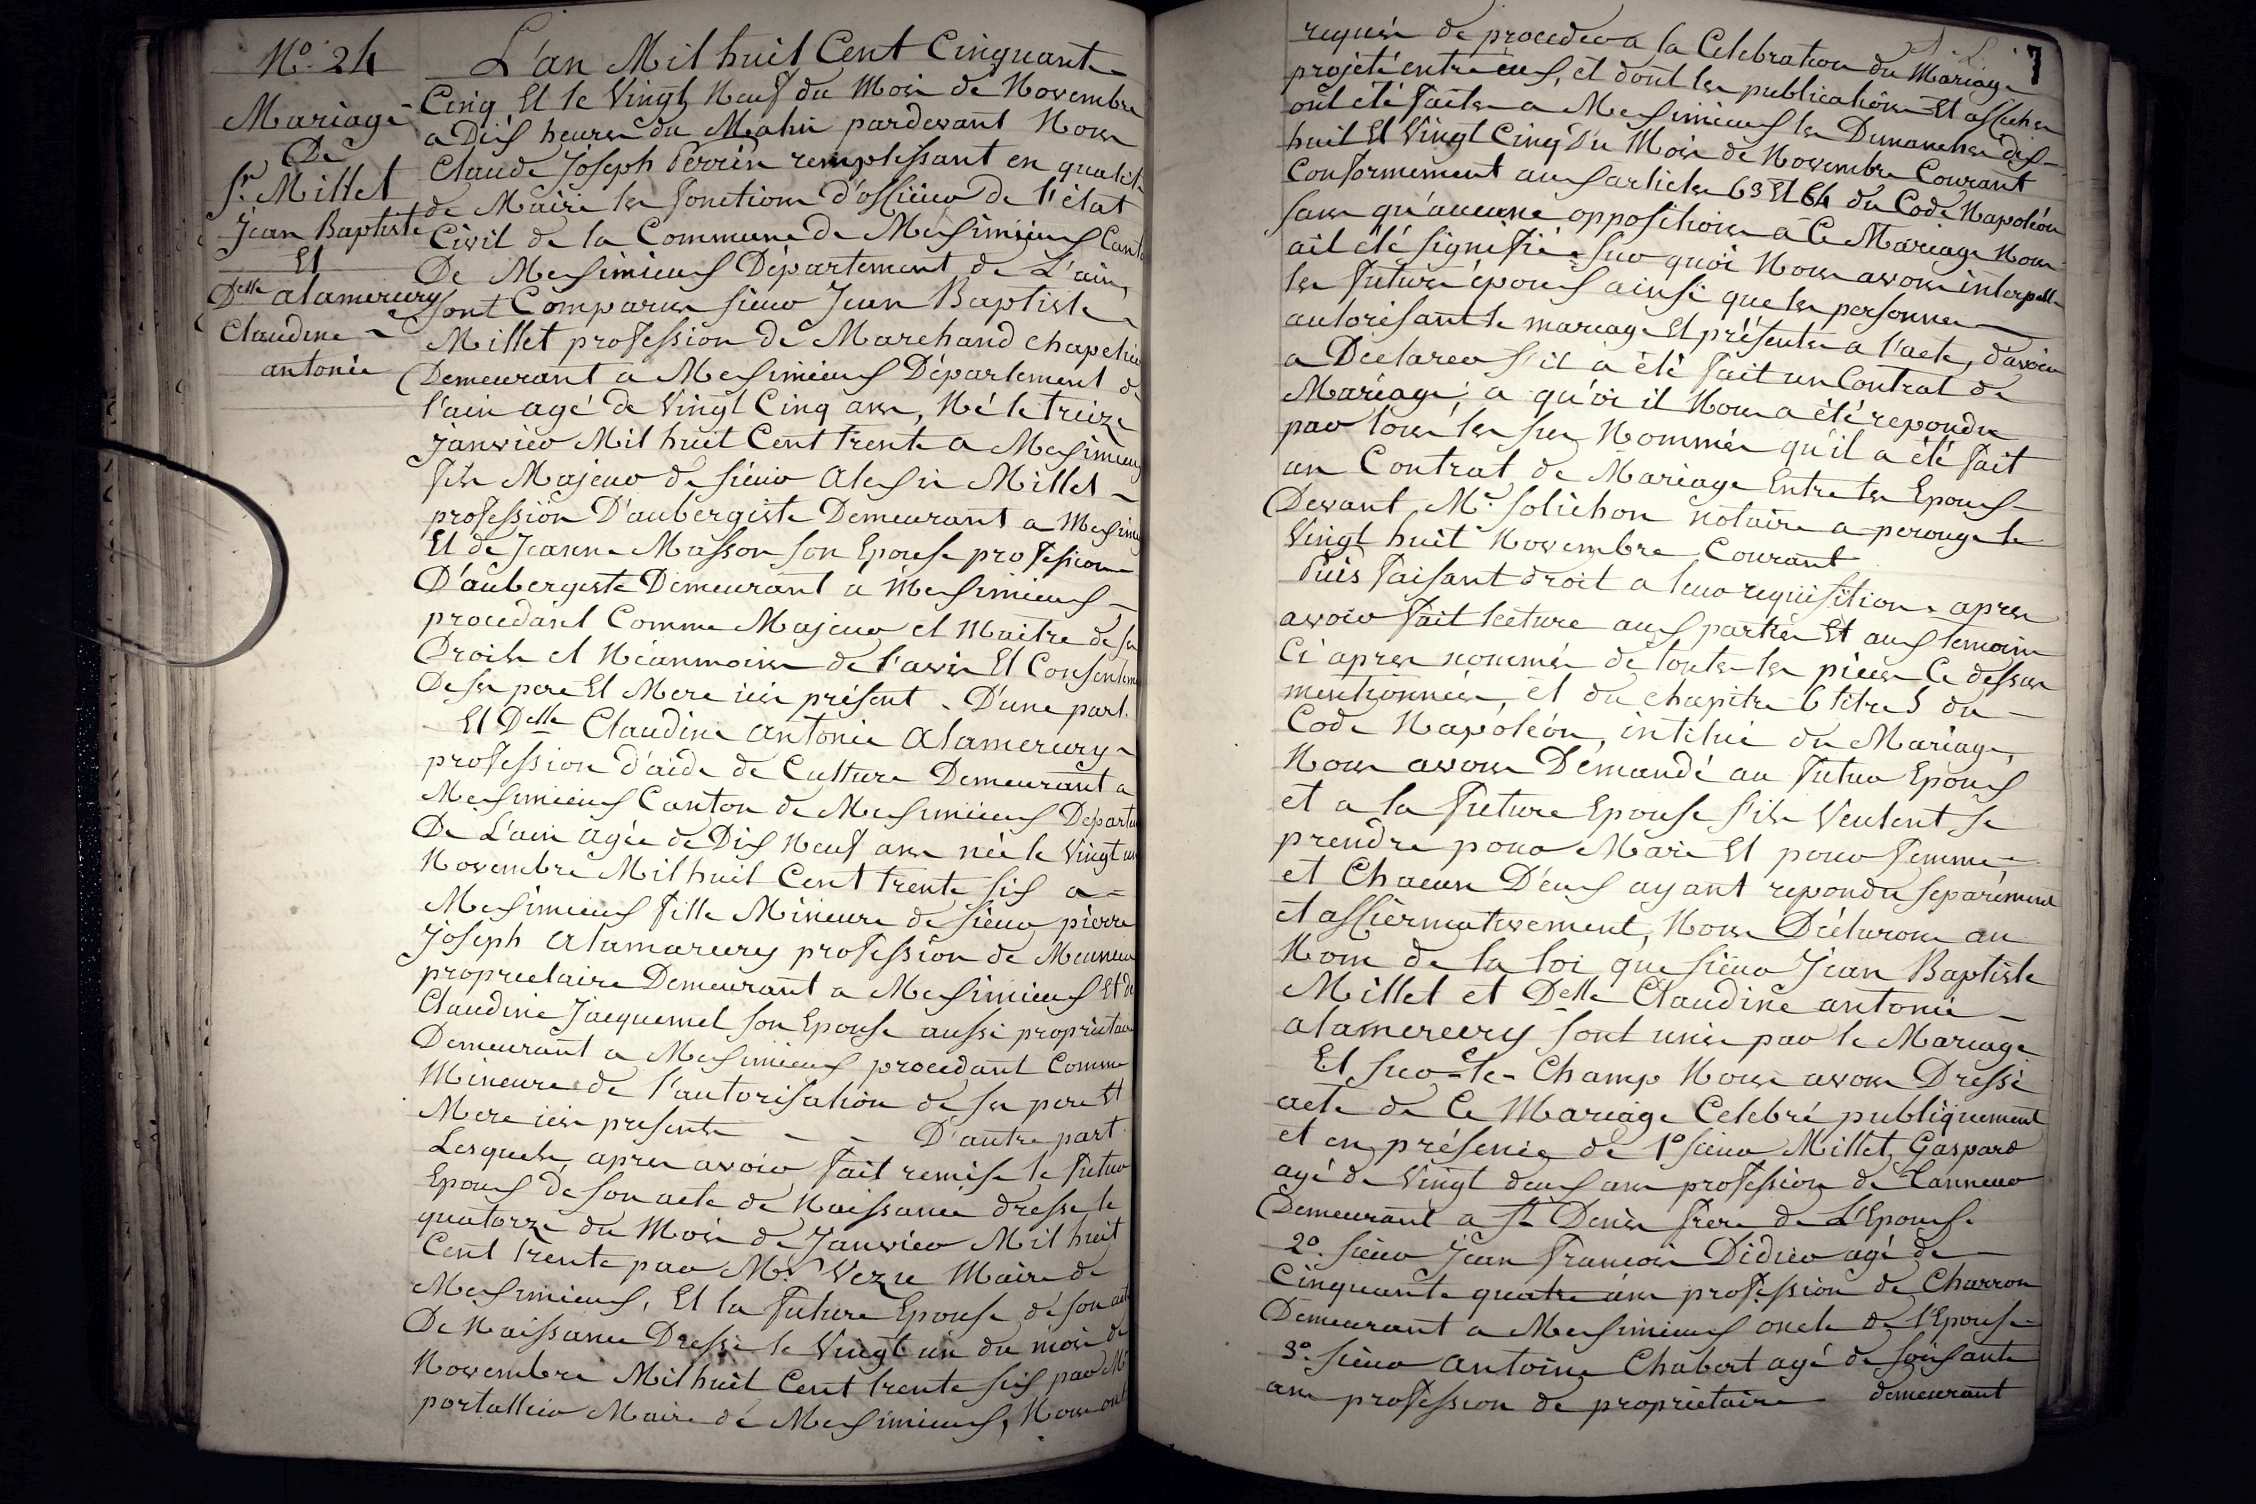 No. 24
Mariage
De
Sr. Millet
Jean Baptiste
Et
Delle alamercery
Claudine
antonie
L'an Mil huit Cent Cinquante
Cinq Et le Vingt Neuf du Mois de Novembre
a Dix heures du Matin pardevant Nous
Claude Joseph Perrin remplissant en qualité
de Maire les fonctions d'officier de l'état
Civil de la Commune de Meximieux Canton
De Meximieux Département de L'ain,
sont Comparus sieur Jean Baptiste
Millet profession de Marchand chapelier
Demeurant a Meximieux Département de
l'ain agé de Vingt Cinq ans, Né le treize
janvier Mil huit Cent trente a Meximieux
fils Majeur de sieur alexis Millet
profession D'aubergiste Demeurant a Meximieux
Et de Jeanne Masson son Epouse profession
D'aubergiste Demeurant a Meximieux
procedant Comme Majeur et Maitre de ses
Droits et Néanmoins de l'avis Et Consentement
De ses pere Et Mere ici présent - D'une part.
Et Delle Claudine antonie alamercery
profession d'aide de Culture Demeurant a
Meximieux Canton de Meximieux Département
De L'ain agée de Dix Neuf ans née le Vingt un
Novembre Mil huit Cent trente six a
Meximieux fille Mineure de sieur pierre
Joseph alamarcery profession de Meunier
proprietaire Demeurant a Meximieux Et de
Claudine Jacquemet son Epouse aussi propriétaire
Demeurant a Meximieux procedant Comme
Mineure de l'autorisation de ses pere Et
Mere ici presents - - D'autre part.
Lesquels apres avoir fait remise le futur
Epoux de son acte de Naissance dressé le
quatorze du Mois de Janvier Mil huit
Cent trente par Mr. Vezu Maire de
Meximieux, Et la future Epouse de son acte
De Naissance Dressé le Vingt un du mois de
Novembre Mil huit Cent trente six par Mr
portallier Maire de Meximieux, Nous ont
7
requis de proceder a la Celebration du Mariage
projeté entre eux, et dont les publications Et affiches
ont été faites a Meximieux les Dimanches dix
huit Et Vingt Cinq du Mois de Novembre Courant
Conformement aux articles 63 Et 64 du Code Napoléon
sans qu'aucune opposition a Ce Mariage Nous
ait été signifiée sur quoi Nous avons interpellé
les futurs époux ainsi que les personnes
autorisant le mariage Et présentes a l'acte, d'avoir
a Declarer s'il a été fait un Contrat de
Mariage; a qu'oi il Nous a été repondu
par tous les sus Nommés qu'il a été fait
un Contrat de Mariage Entre les Epoux
Devant Me. solichon notaire a perouge le
Vingt huit Novembre Courant
Puis faisant droit a leur requisition apres
avoir fait lecture aux parties Et aux temoins
Ci apres nommés de toutes les pieces Ce dessus
mentionnées, et du chapitre 6 titre 5 du
Code Napoléon, intitulé du Mariage,
Nous avons Demandé au futur Epoux
et a la future Epouse s'ils Veulent se
prendre pour Mari Et pour femme
et Chacun D'eux ayant repondu separément
et affiermativement, Nous Déclarons au
Nom de la loi que sieur Jean Baptiste
Millet et Delle Claudine antonie
alamercery sont unis par le Mariage
Et sur-le-Champ Nous avons Dressé
acte de Ce Mariage Celebré publiquement
et en présence de 1o sieur Millet Gaspard
agé de Vingt deux ans profession de tanneur
Demeurant a St. Denis frere de L'Epoux.
2o. sieur Jean francois Didier agé de
Cinquante quatre ans profession de Charron
Demeurant a Meximieux oncle de l'Epouse
3o. sieur antoine Chabert agé de soixante
ans profession de propriétaire demeurant